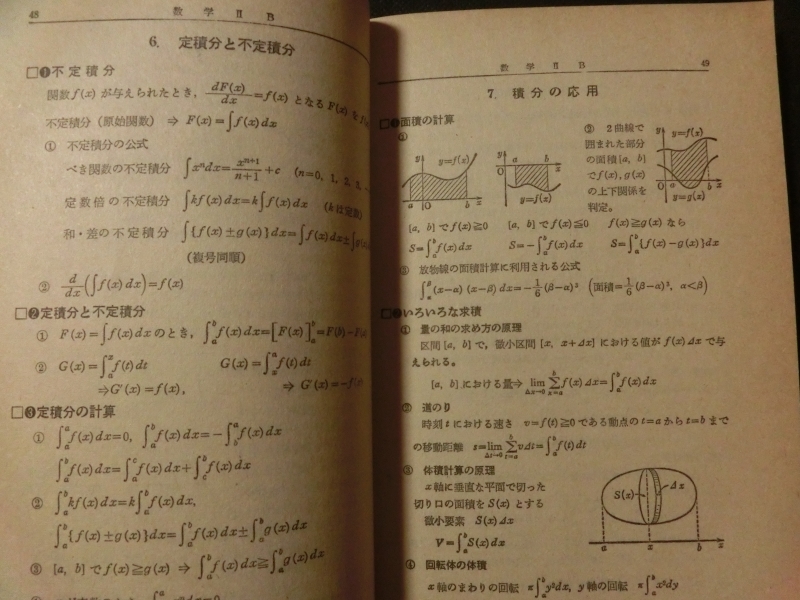 48
数学ⅡB
6. 定積分と不定積分
□❶不定積分
関数f(x)が与えられたとき, dF(x)/dx=f(x) となる F(x) を
不定積分 (原始関数) ⇒ F(x)=∫f(x)dx
① 不定積分の公式
べき関数の不定積分 ∫xⁿdx=xⁿ⁺¹/n+1+c (n=0, 1, 2, 3,
定数倍の不定積分 ∫kf(x)dx=k∫f(x)dx (kは定数)
和・差の不定積分 ∫{f(x)±g(x)}dx=∫f(x)dx±∫g(x)
(複号同順)
② d/dx(∫f(x)dx)=f(x)
□❷定積分と不定積分
① F(x)=∫f(x)dxのとき, ∫ₐᵇf(x)dx=[F(x)]ₐᵇ=F(b)-F(a)
② G(x)=∫ₐˣf(t)dt G(x)=∫ₓᵃf(t)dt
⇒G'(x)=f(x), ⇒ G'(x)=-f(x)
□❸定積分の計算
① ∫ₐᵃf(x)dx=0, ∫ₐᵇf(x)dx=-∫ᵇₐf(x)dx
∫ₐᵇf(x)dx=∫ₐᶜf(x)dx+∫ᶜᵇf(x)dx
② ∫ₐᵇkf(x)dx=k∫ₐᵇf(x)dx,
∫ₐᵇ{f(x)±g(x)}dx=∫ₐᵇf(x)dx±∫ₐᵇg(x)dx
③ [a, b]でf(x)≧g(x) ⇒ ∫ₐᵇf(x)dx≧∫ₐᵇg(x)dx
数学ⅡB
49
7. 積分の応用
□❶面積の計算
①
y y=f(x) a O b x
y a b O x y=f(x)
② 2曲線で
囲まれた部分
の面積[a, b]
でf(x), g(x)
の上下関係を
判定。
y y=f(x) a O b x y=g(x)
[a, b]でf(x)≧0 [a, b]でf(x)≦0 f(x)≧g(x)なら
S=∫ₐᵇf(x)dx S=-∫ₐᵇf(x)dx S=∫ₐᵇ{f(x)-g(x)}dx
③ 放物線の面積計算に利用される公式
∫α^β(x-α)(x-β)dx=-1/6(β-α)³ (面積=1/6(β-α)³, α<β)
□❷いろいろな求積
① 量の和の求め方の原理
区間[a, b]で, 微小区間[x, x+Δx]における値がf(x)Δxで与
えられる。
[a, b]における量⇒ lim Δx→0 Σ x=a b f(x)Δx=∫ₐᵇf(x)dx
② 道のり
時刻tにおける速さ v=f(t)≧0である動点のt=aからt=bまで
の移動距離 l=lim Δt→0 Σ t=a b vΔt=∫ₐᵇf(t)dt
③ 体積計算の原理
x軸に垂直な平面で切った
切り口の面積をS(x)とする
微小要素 S(x)Δx
V=∫ₐᵇS(x)dx
S(x) Δx
a x b
④ 回転体の体積
x軸のまわりの回転 π∫ₐᵇy²dx, y軸の回転 π∫ₐᵇx²dy